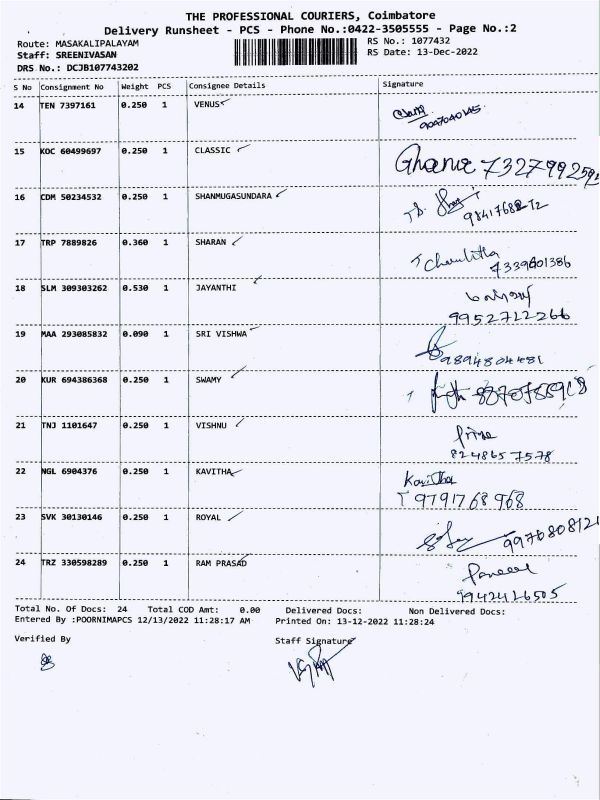 THE PROFESSIONAL COURIERS, Coimbatore
Delivery Runsheet - PCS - Phone No.:0422-3505555 - Page No.:2
Route: MASAKALIPALAYAM RS No.: 1077432
Staff: SREENIVASAN RS Date: 13-Dec-2022
DRS No.: DCJB107743202
S No Consignment No Weight PCS Consignee Details Signature
14 TEN 7397161 0.250 1 VENUS
15 KOC 60499697 0.250 1 CLASSIC
16 CDM 50234532 0.250 1 SHANMUGASUNDARA
17 TRP 7889826 0.360 1 SHARAN
7339601386
18 SLM 309303262 0.530 1 JAYANTHI
9952712266
19 MAA 293085832 0.090 1 SRI VISHWA
9894804481
20 KUR 694386368 0.250 1 SWAMY
21 TNJ 1101647 0.250 1 VISHNU
8248657578
22 NGL 6904376 0.250 1 KAVITHA Kavitha
9791768968
23 SVK 30130146 0.250 1 ROYAL
24 TRZ 330598289 0.250 1 RAM PRASAD
Total No. Of Docs: 24 Total COD Amt: 0.00 Delivered Docs: Non Delivered Docs:
Entered By :POORNIMAPCS 12/13/2022 11:28:17 AM Printed On: 13-12-2022 11:28:24
Verified By Staff Signature